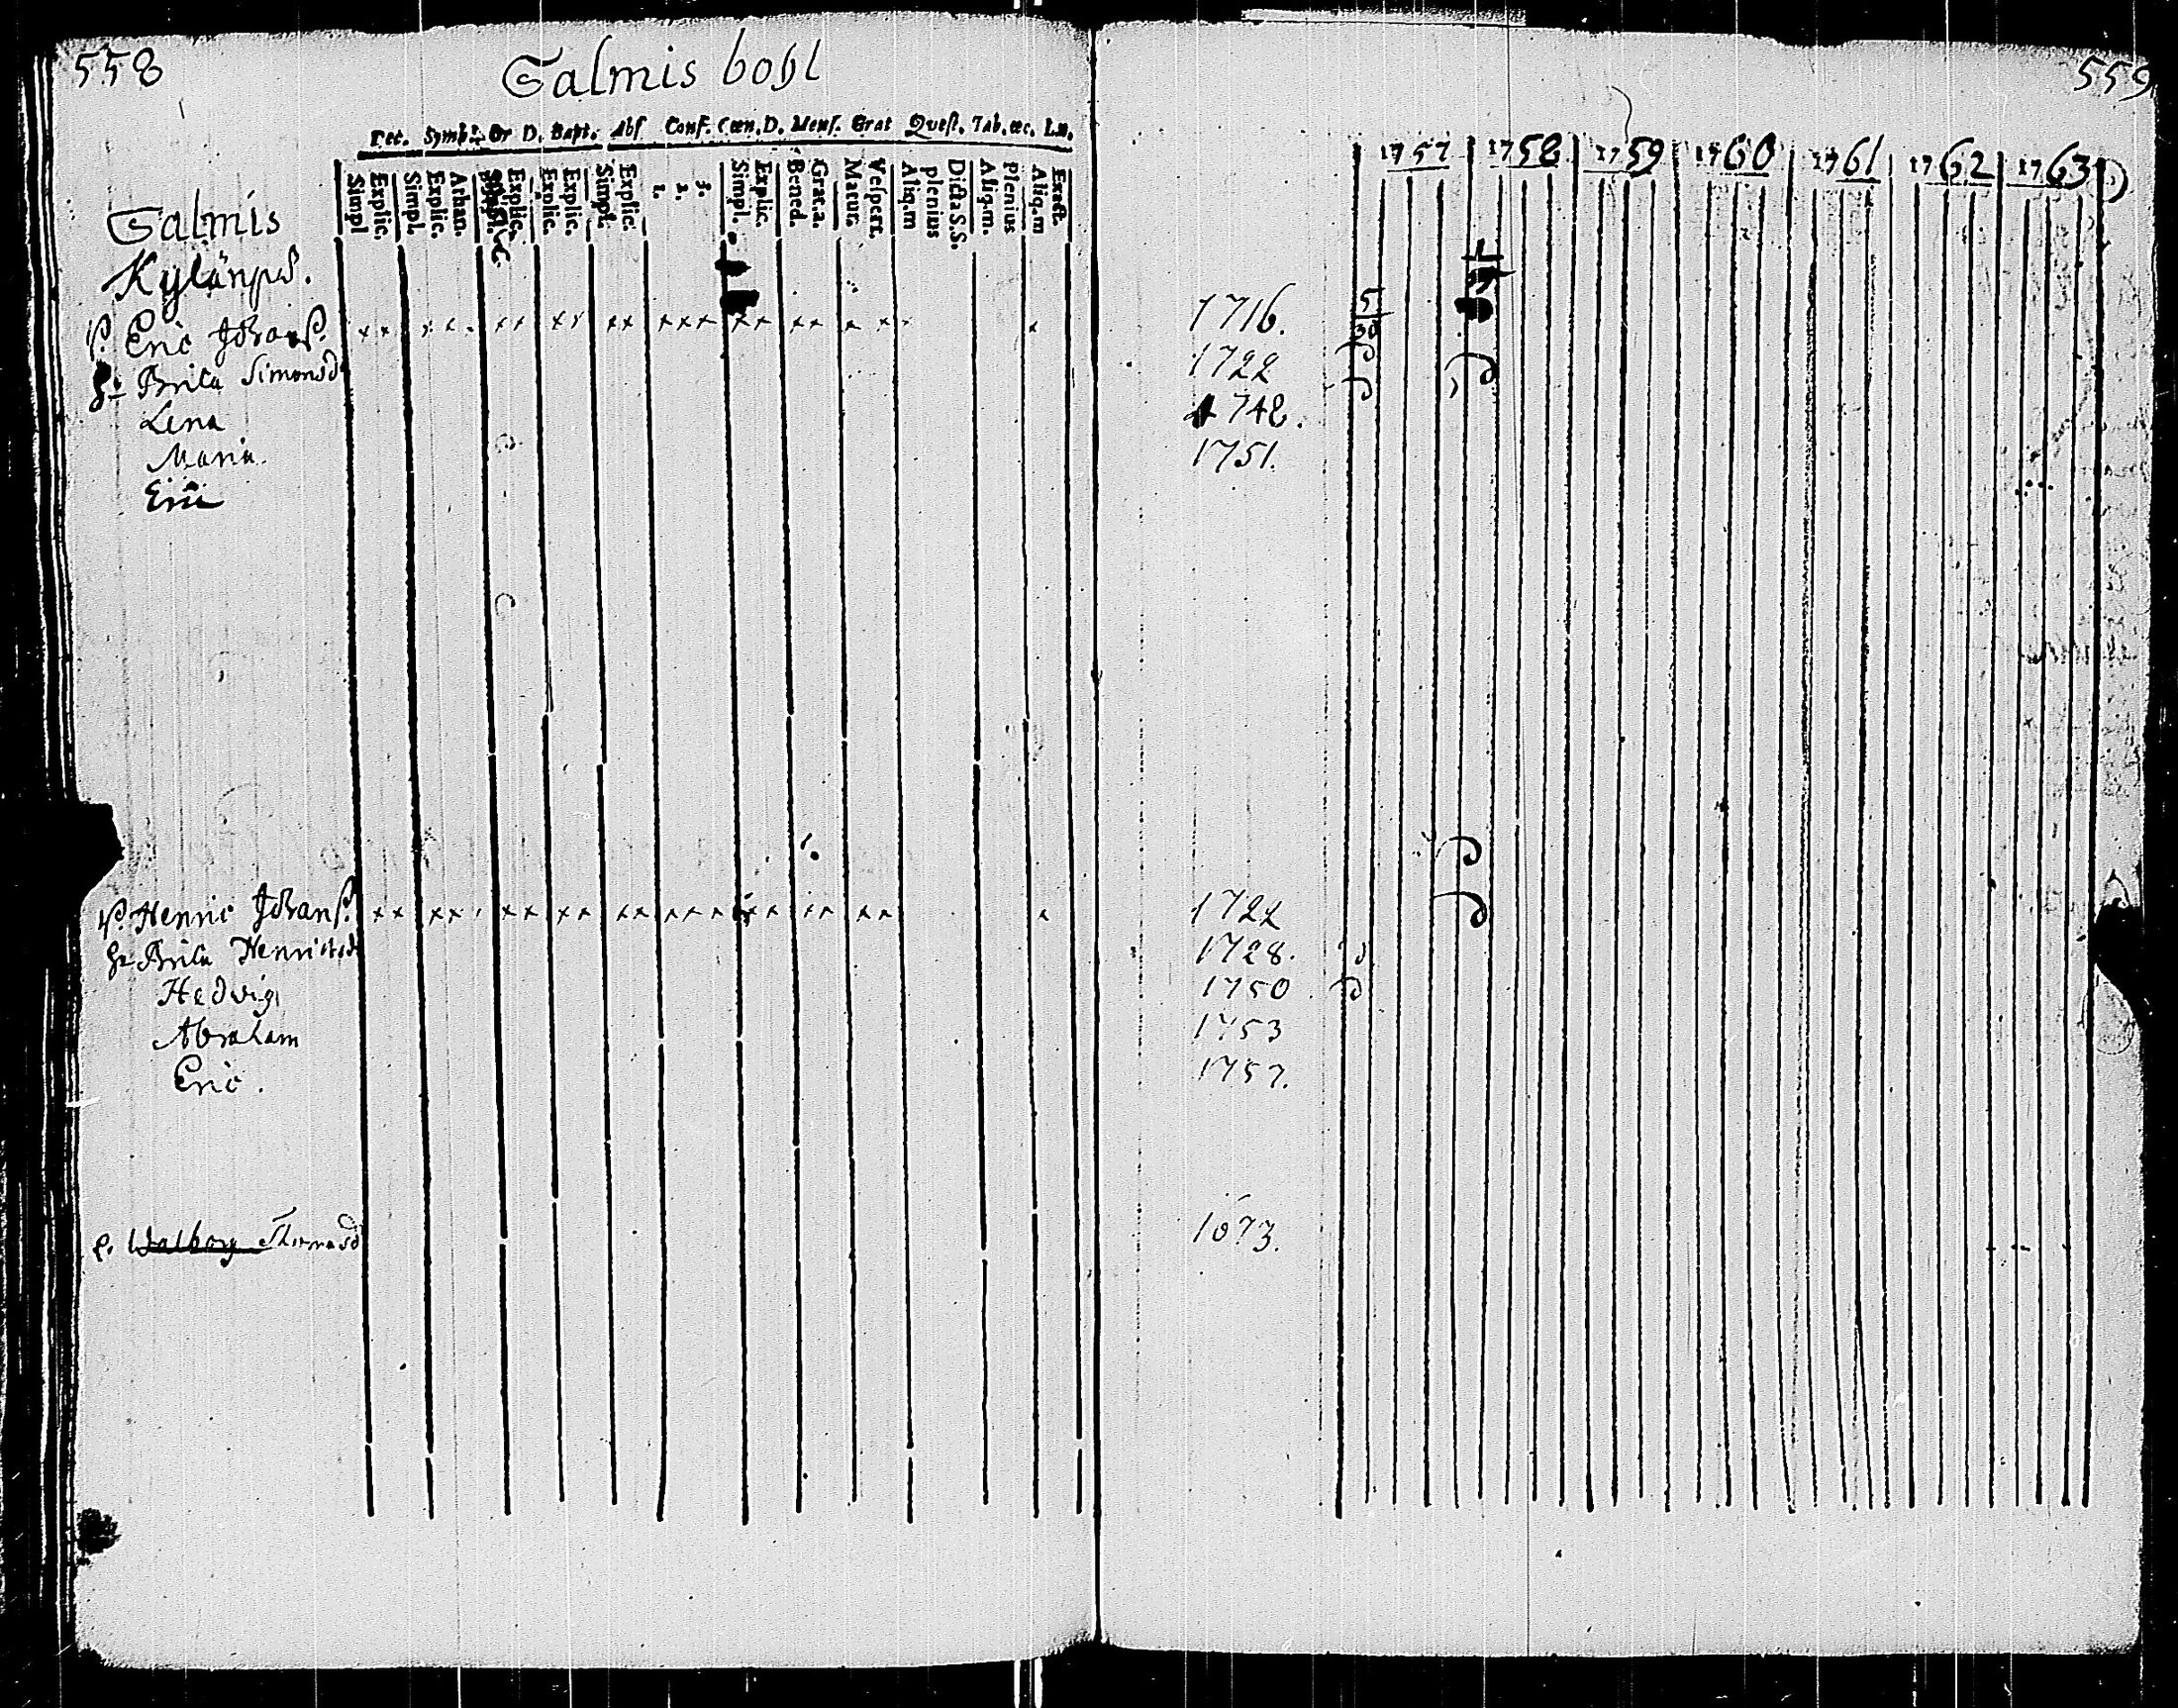 558
Salmis bohl
Dec. Symb. Or D. Bapt. Abs Conf. Cœn. D. Mens. Grat Quest. Tab. œc. Lu.
Simpl Explic. Simpl. Explic. Athan. Explic. Explic. Explic. Simpl. Explic. 1. 2. 3. Simpl. Explic. Bened. Grat.a. Matut. Vespert. Aliq.m plenius Dicta S.S. Aliq.m. Plenius Aliq.m Exact.
Salmis
Eric Johanss.
Brita Simonsd
Lena
Maria
Eric
Henric Johanss.
Brita Henrichsd
Hedvig
Abraham
Eric.
e. Walborg Thomasd
559
1757 1758 1759 1760 1761 1762 1763
1716. 5/30
1722
1748.
1751.
1722
1728.
1750
1753
1757.
1673.